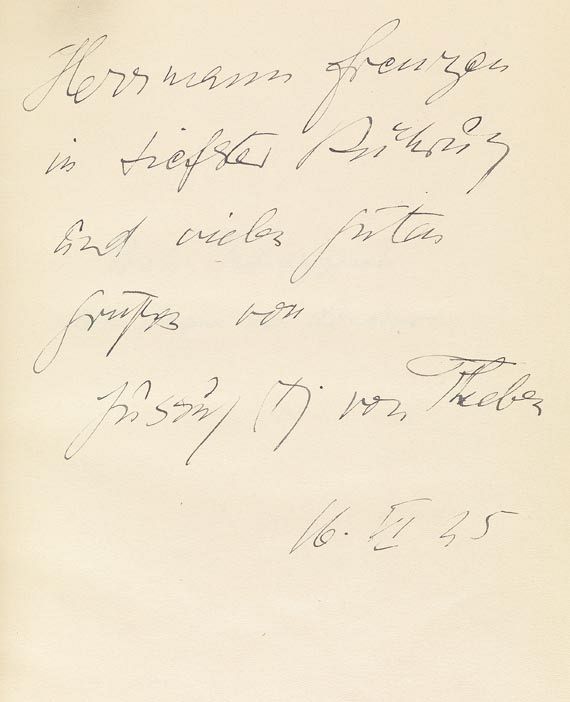 Herrmann Frenzen
in tiefster Rührung
und vielen guten
Grüßen von
Jusuuf (†) von Theben
16. VII 25